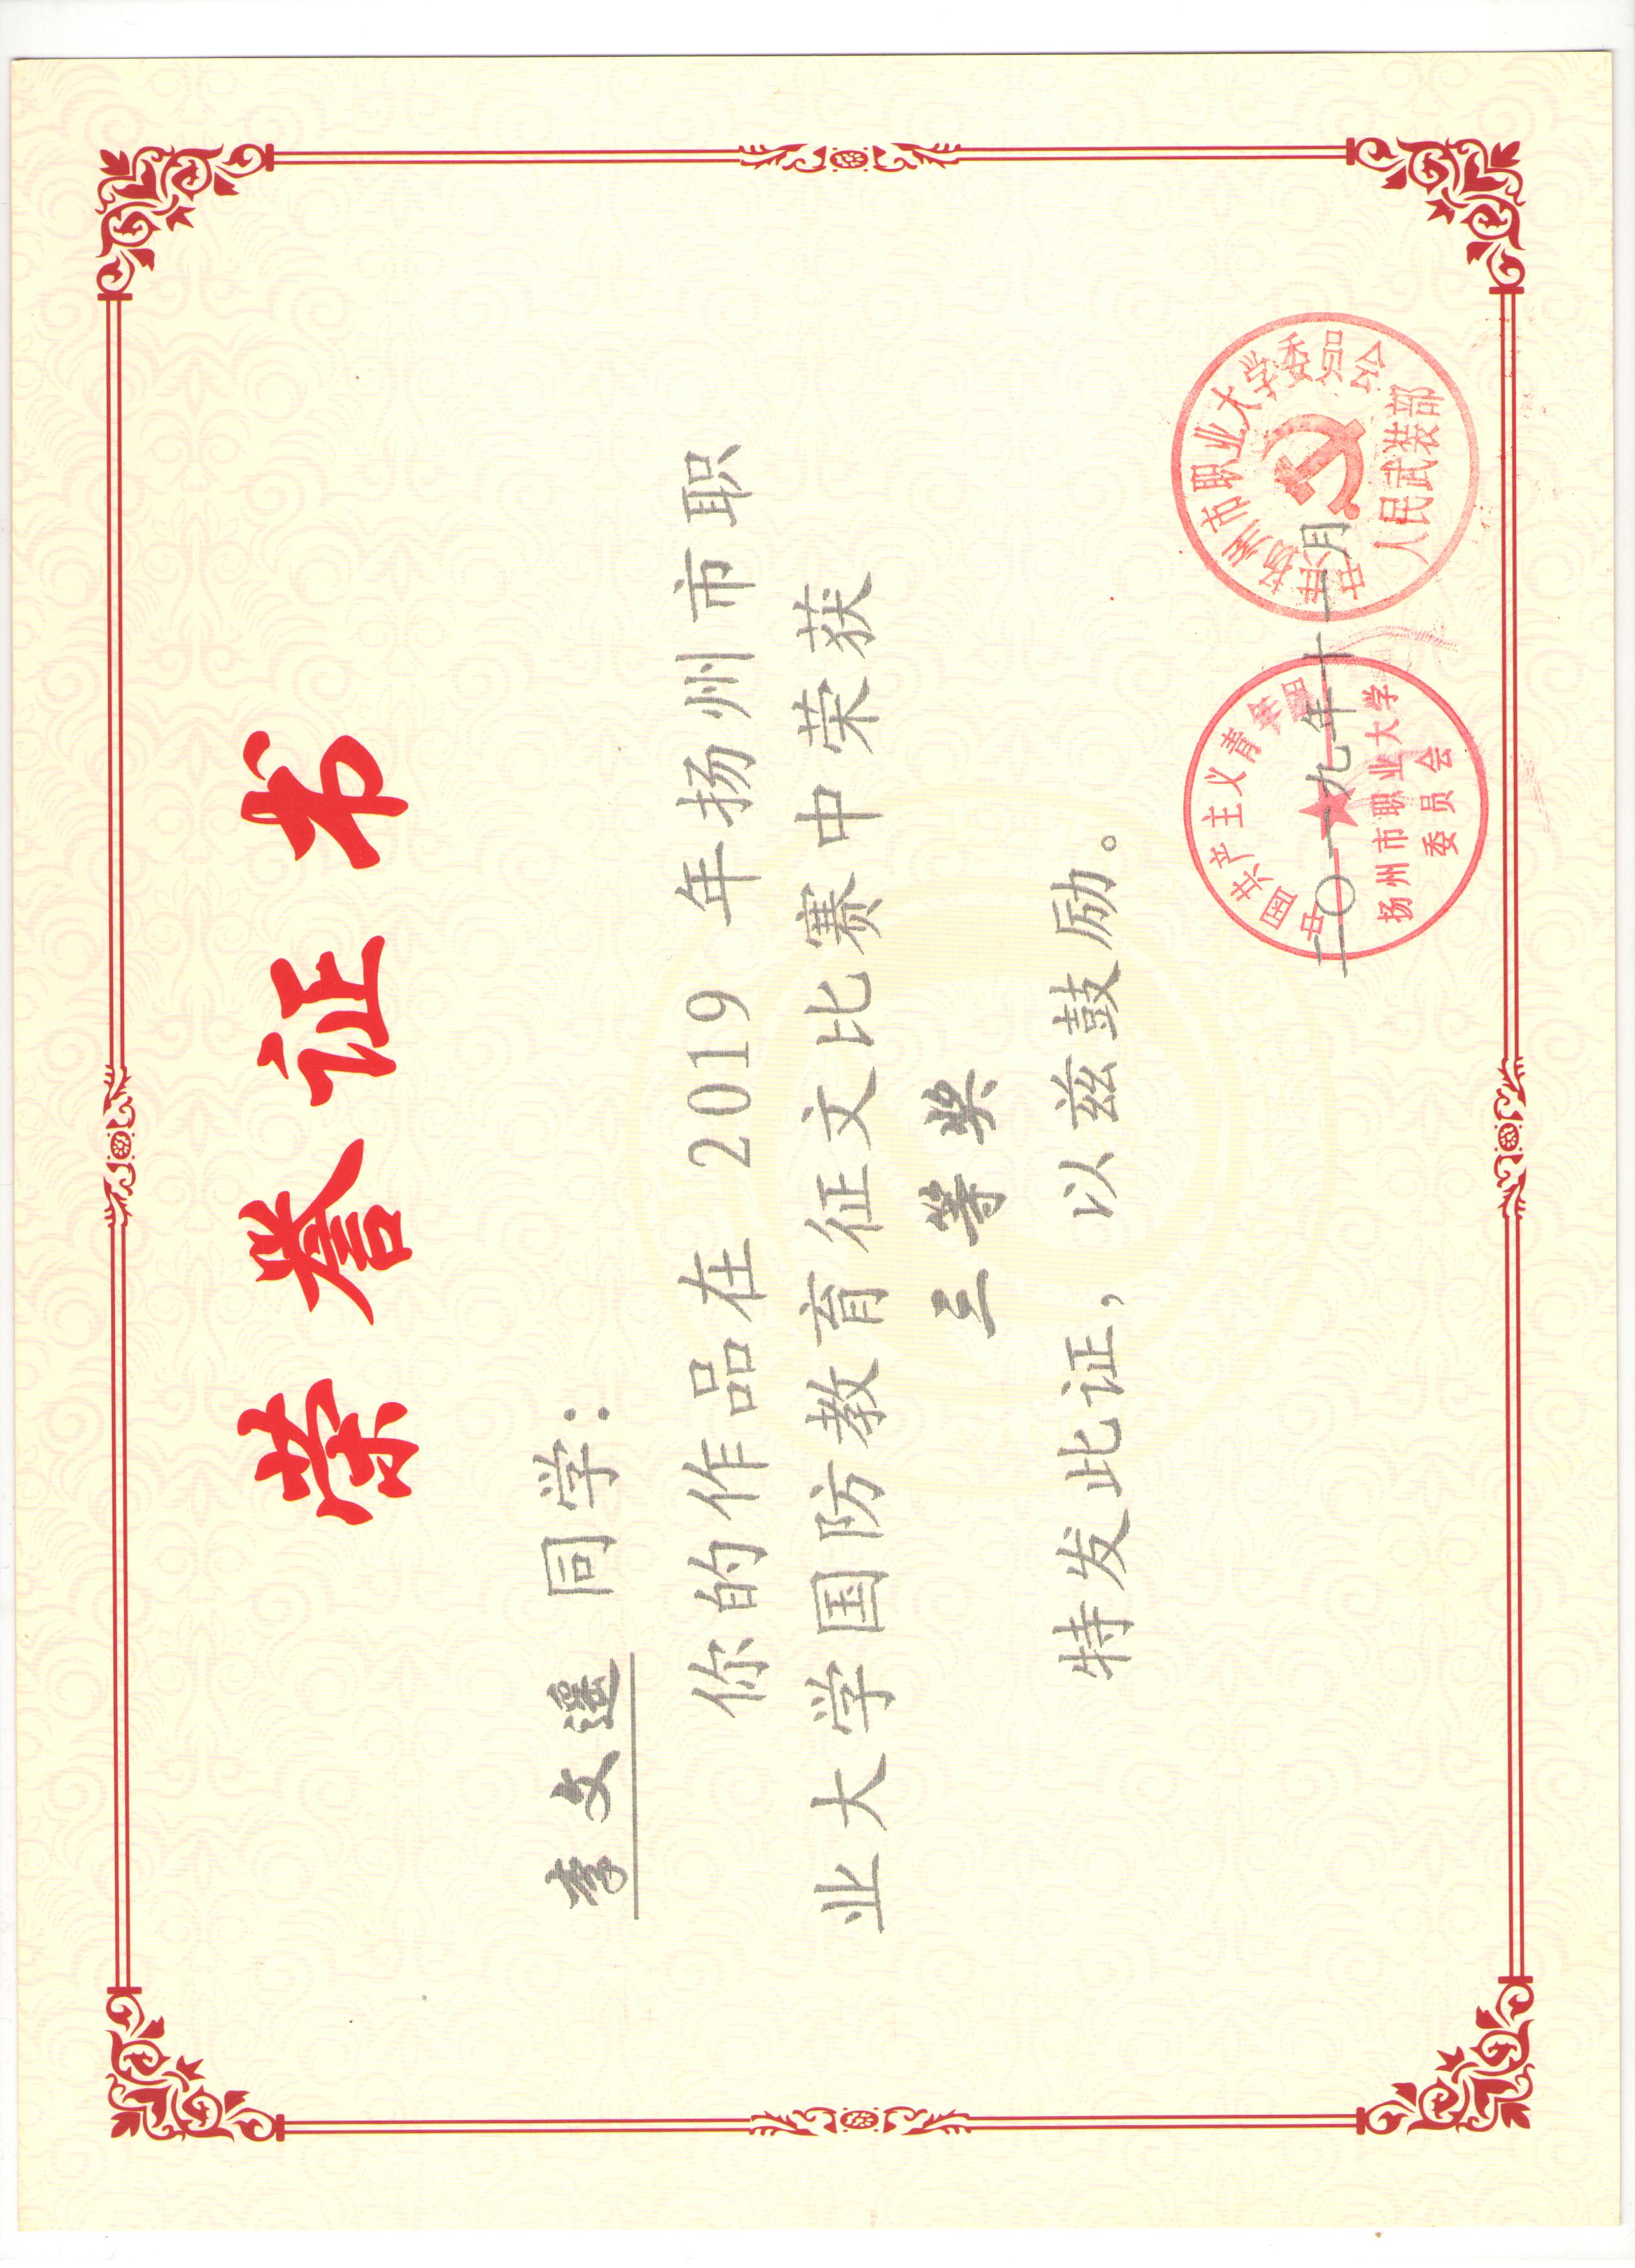 荣誉证书
李文遥 同学：
你的作品在 2019 年扬州市职
业大学国防教育征文比赛中荣获
三等奖
特发此证，以兹鼓励。
二〇一九年十一月
中国共产主义青年团
扬州市职业大学
委员会
中共扬州市职业大学委员会
人民武装部